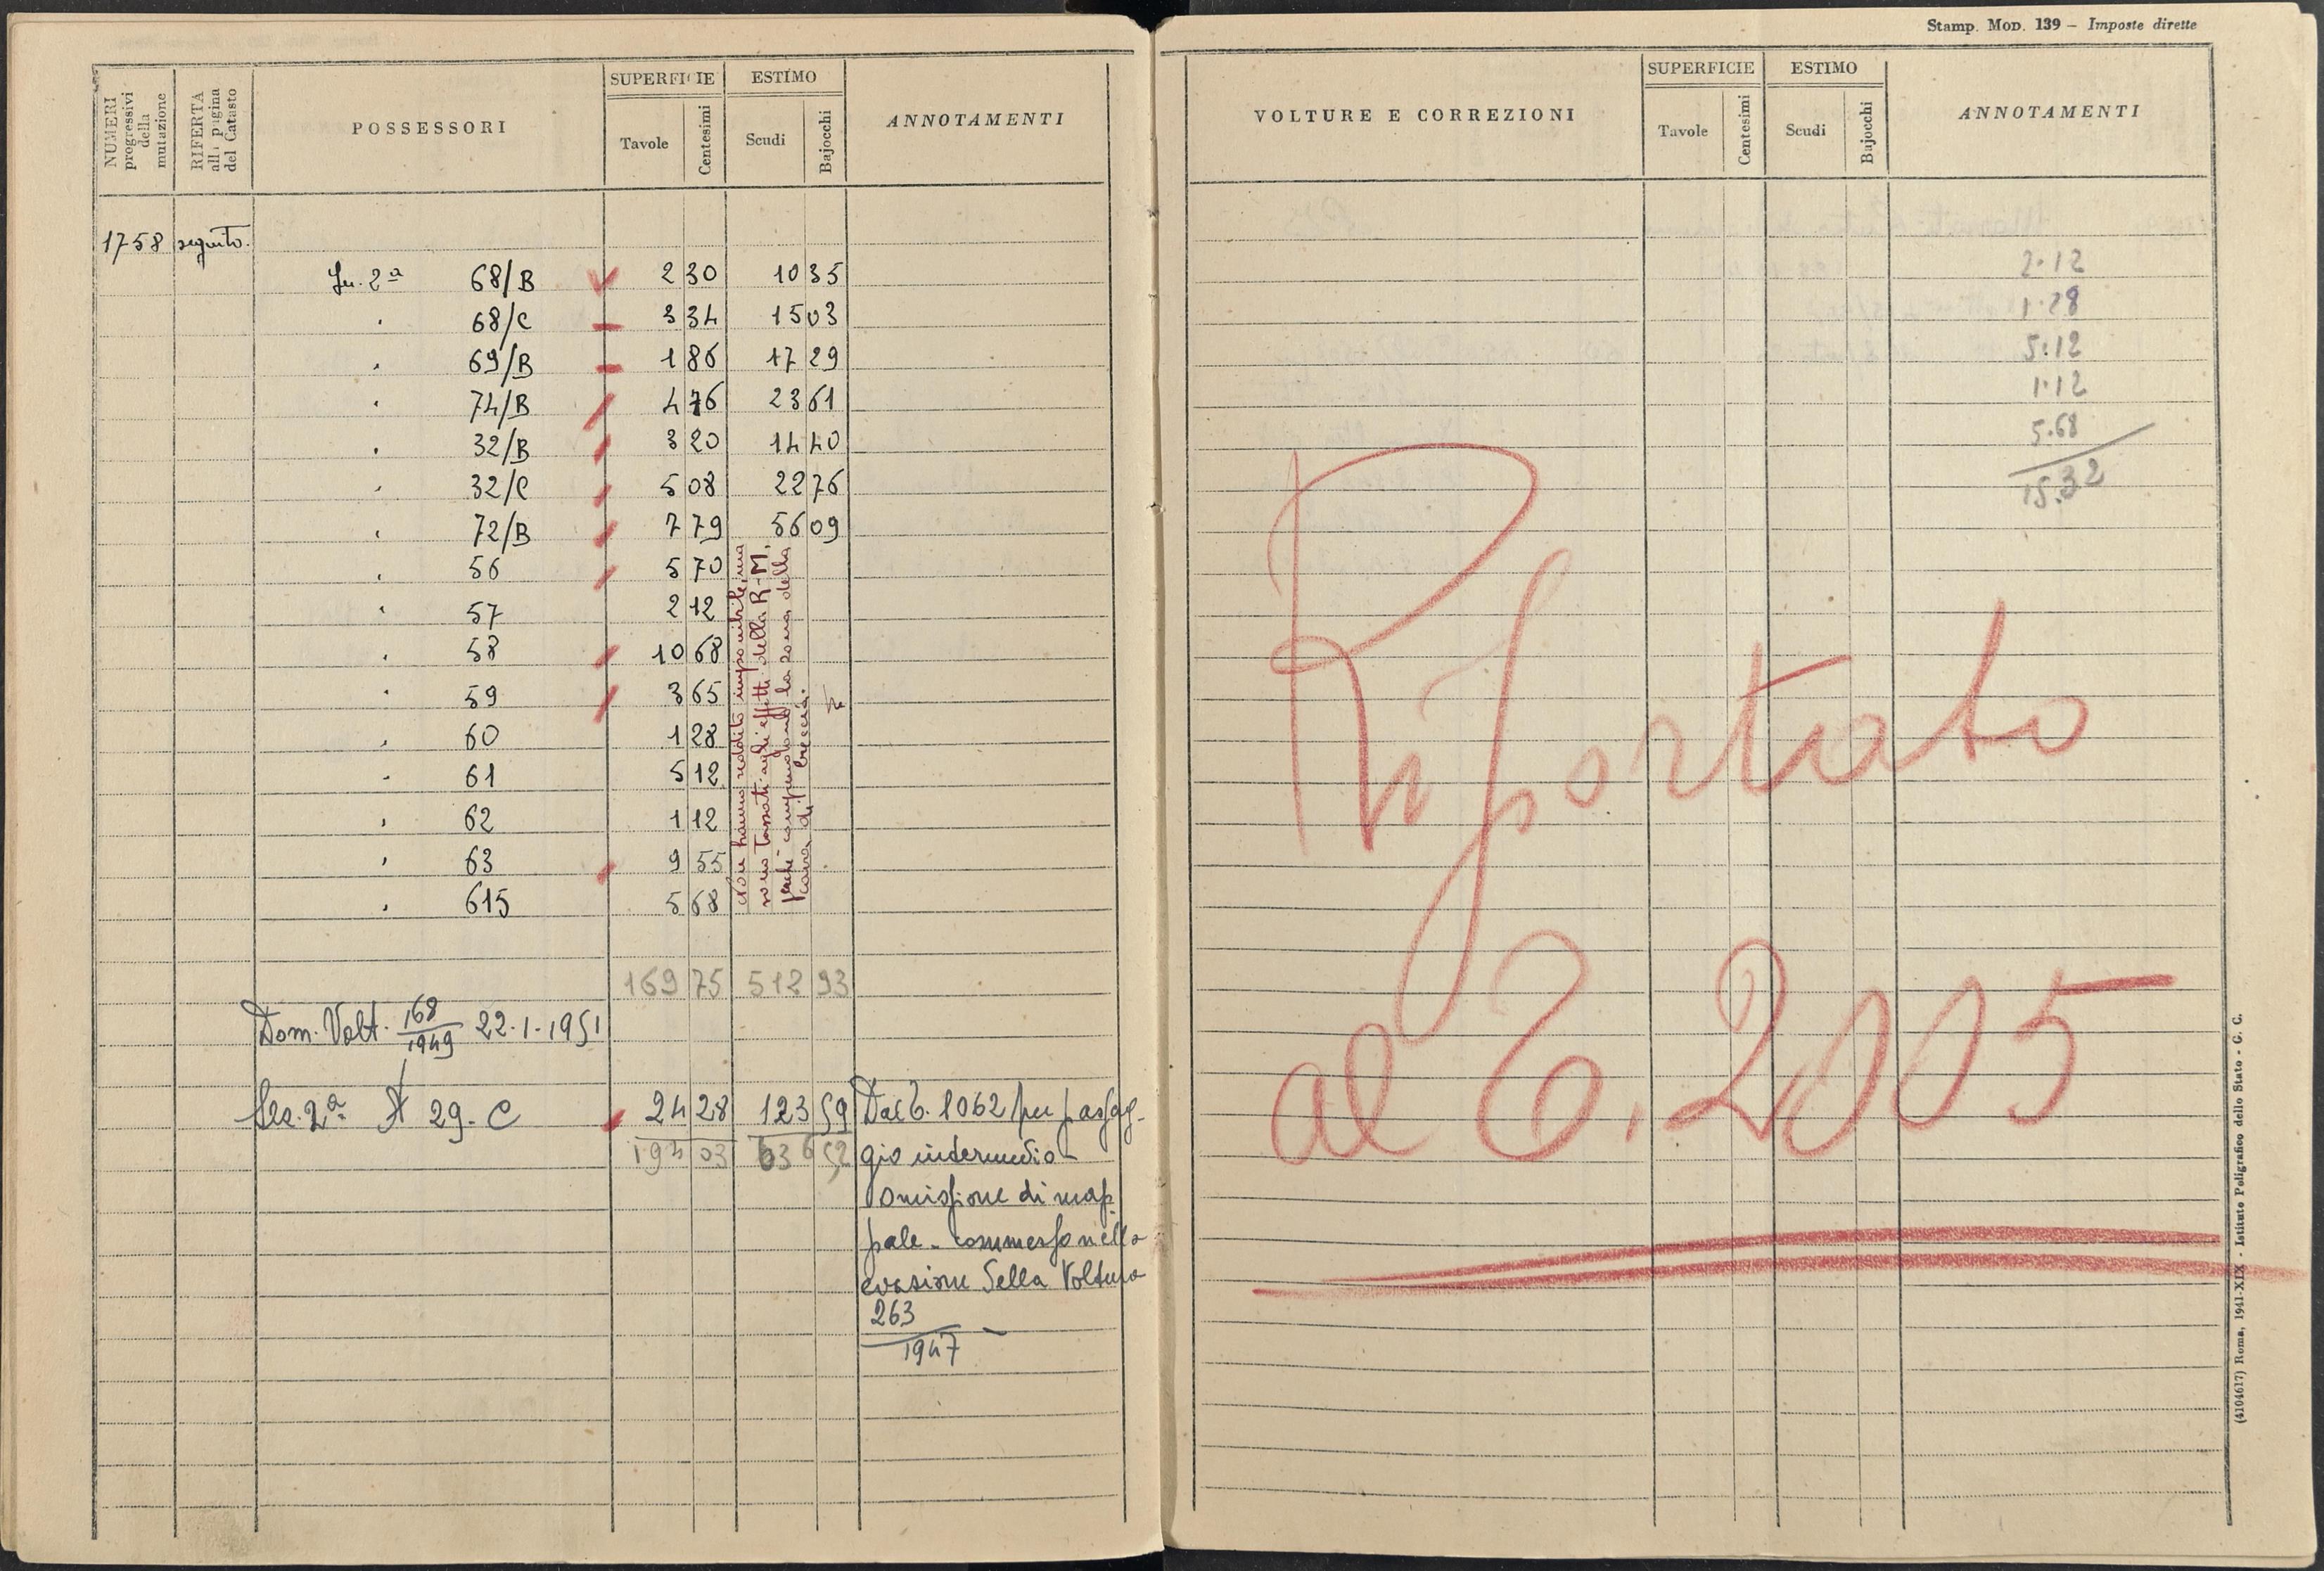 NUMERI progressivi della mutazione
RIFERTA alla pagina del Catasto
POSSESSORI
SUPERFICIE
Tavole
Centesimi
ESTIMO
Scudi
Bajocchi
ANNOTAMENTI
1758 seguito.
Su. 2ª 68/B 2 30 10 35
" 68/C 3 34 15 03
" 69/B 1 86 17 29
" 74/B 4 76 23 61
" 32/B 3 20 14 40
" 32/C 5 08 22 76
" 72/B 7 79 56 09
" 56 5 70
" 57 2 12
" 58 10 68
" 59 3 65
" 60 1 28
" 61 5 12
" 62 1 12
" 63 9 55
" 615 5 68
Non hanno reddito imponibile, ma
sono tassati agli effetti della R-M.
perché comprendono la zona della
cava di breccia.
169 75 512 93
Dom. Volt. 168/1949 22-1-1951
Sez. 2ª X 29-C 24 28 123 59 Dal 6. 1062 per passag-
194 03 636 52 gio intermedio
omissione di map-
pale - commesso nella
evasione della Voltura
263
1947
Stamp. Mod. 139 - Imposte dirette
VOLTURE E CORREZIONI
SUPERFICIE
Tavole
Centesimi
ESTIMO
Scudi
Bajocchi
ANNOTAMENTI
2.12
1.28
5.12
1.12
5.68
15.32
Riportato
al 6. 2005
(4104617) Roma, 1941-XIX - Istituto Poligrafico dello Stato - G. C.